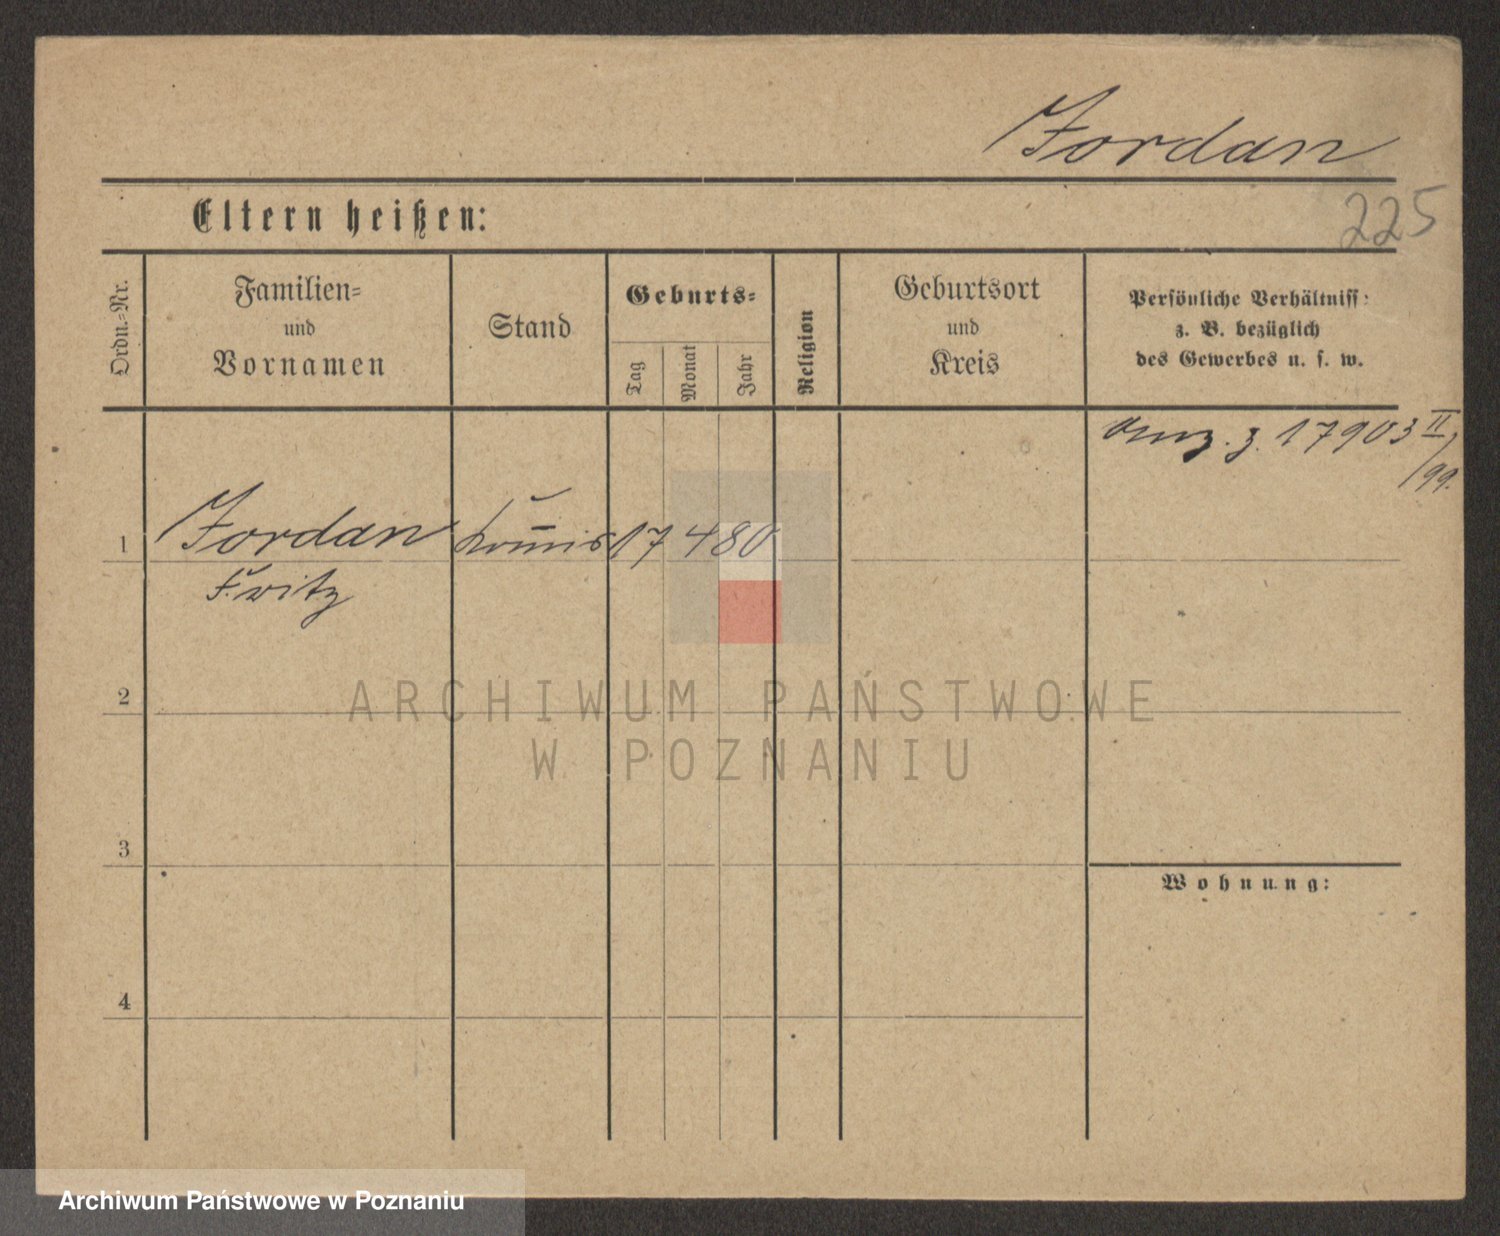 Jordan
Eltern heißen:
225
Ordn.=Nr.
Familien=
und
Vornamen
Stand
Geburts=
Tag
Monat
Jahr
Religion
Geburtsort
und
Kreis
Persönliche Verhältniss:
z. B. bezüglich
des Gewerbes u. s. w.
z. 17903 II
/99.
1
Jordan
Fritz
Kommis
17
4
80
2
ARCHIWUM PAŃSTWOWE
W POZNANIU
3
Wohnung:
4
Archiwum Państwowe w Poznaniu